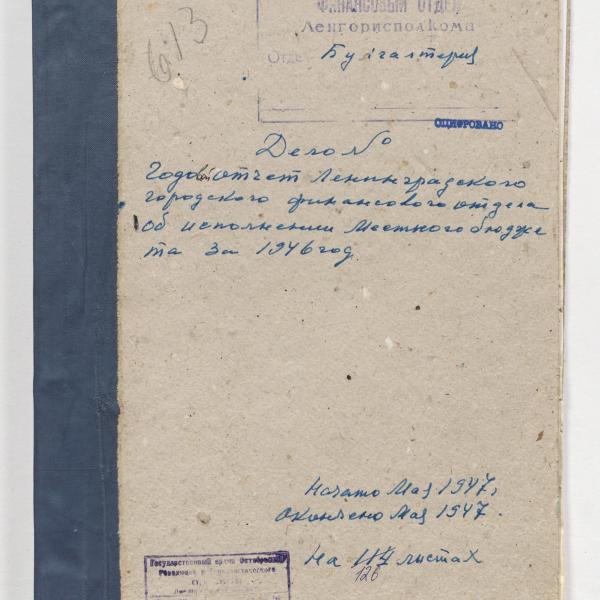 613
ФИНАНСОВЫЙ ОТДЕЛ
Ленгорисполкома
Отдел Бухгалтерия
ОЦИФРОВАНО
Дело №
Годовой отчет Ленинградского
городского финансового отдела
об исполнении местного бюдже
та за 1946 год.
Начато Май 1947г.
Окончено Май 1947.
На 117 листах
126
Государственный архив Октябрьской
Революции и Социалистического